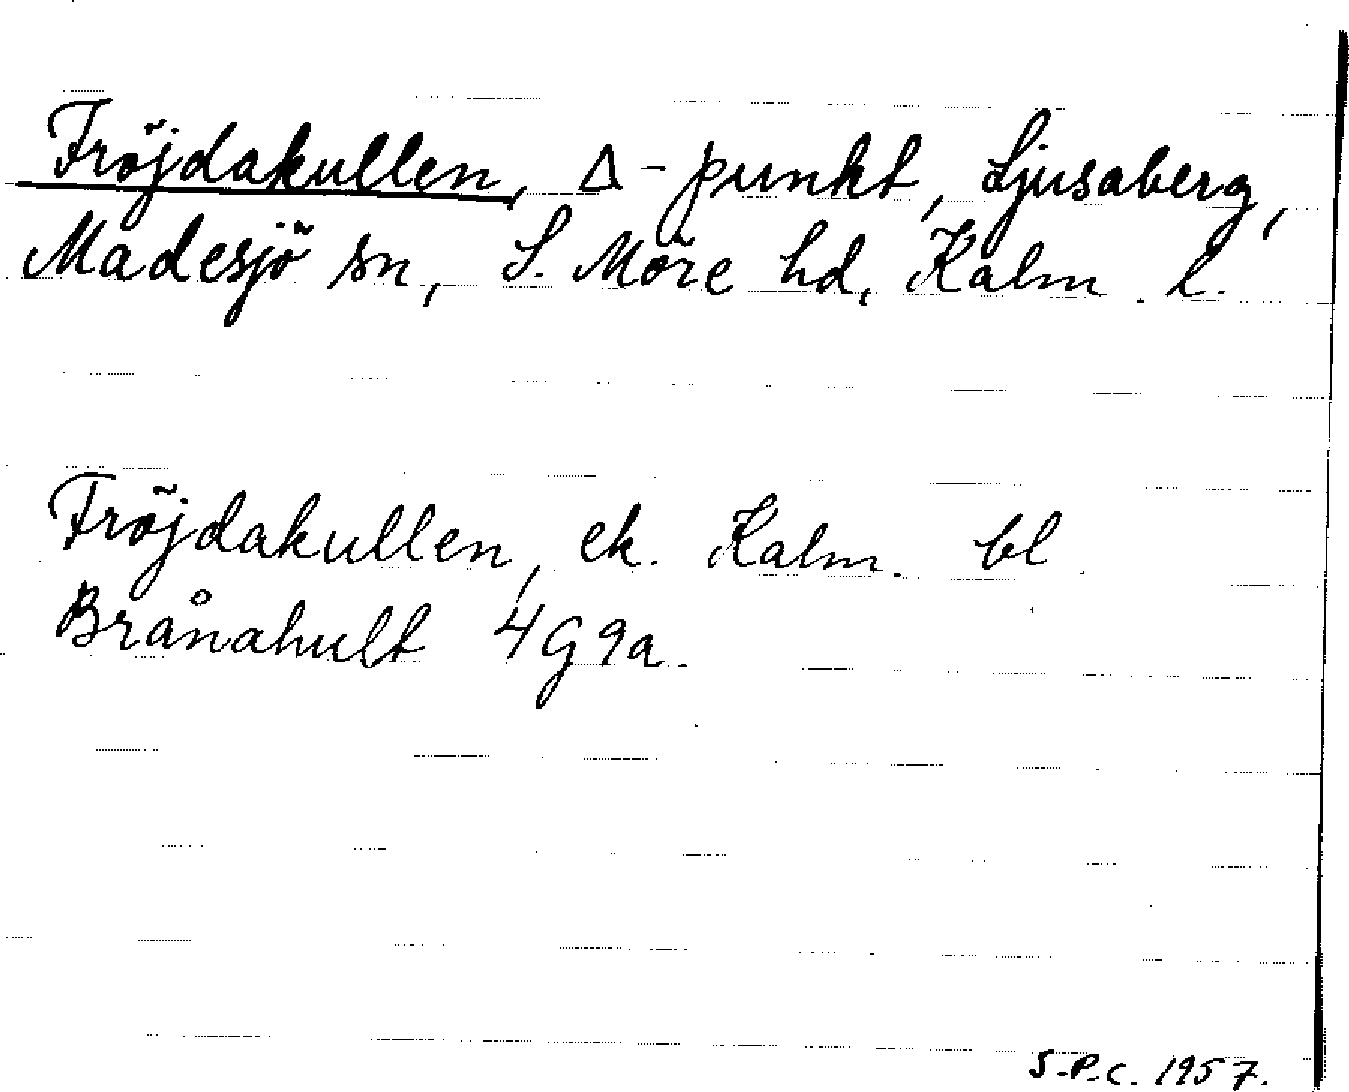 Fröjdakullen, Δ-punkt, Ljusaberg,
Madesjö sn, S. Möre hd, Kalm. l.
Fröjdakullen, ek. Kalm. bl
Brånahult 4G9a.
S.P.C. 1957.